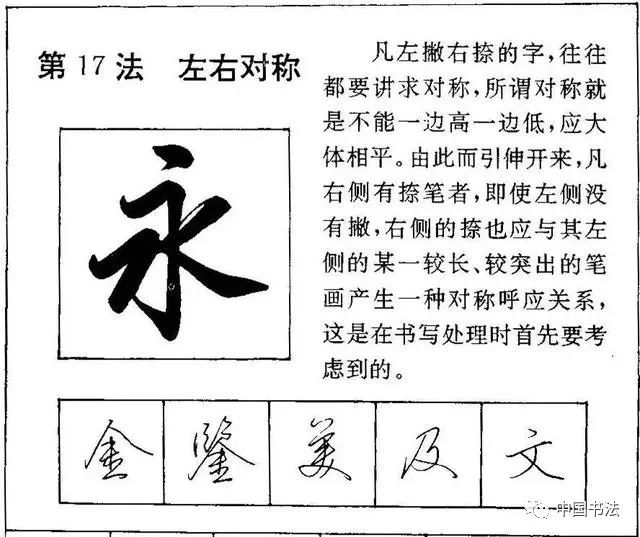 第17法 左右对称
凡左撇右捺的字，往往
都要讲求对称，所谓对称就
是不能一边高一边低，应大
体相平。由此而引伸开来，凡
右侧有捺笔者，即使左侧没
有撇，右侧的捺也应与其左
侧的某一较长、较突出的笔
画产生一种对称呼应关系，
这是在书写处理时首先要考
虑到的。
永
金 鉴 美 及 文
中国书法